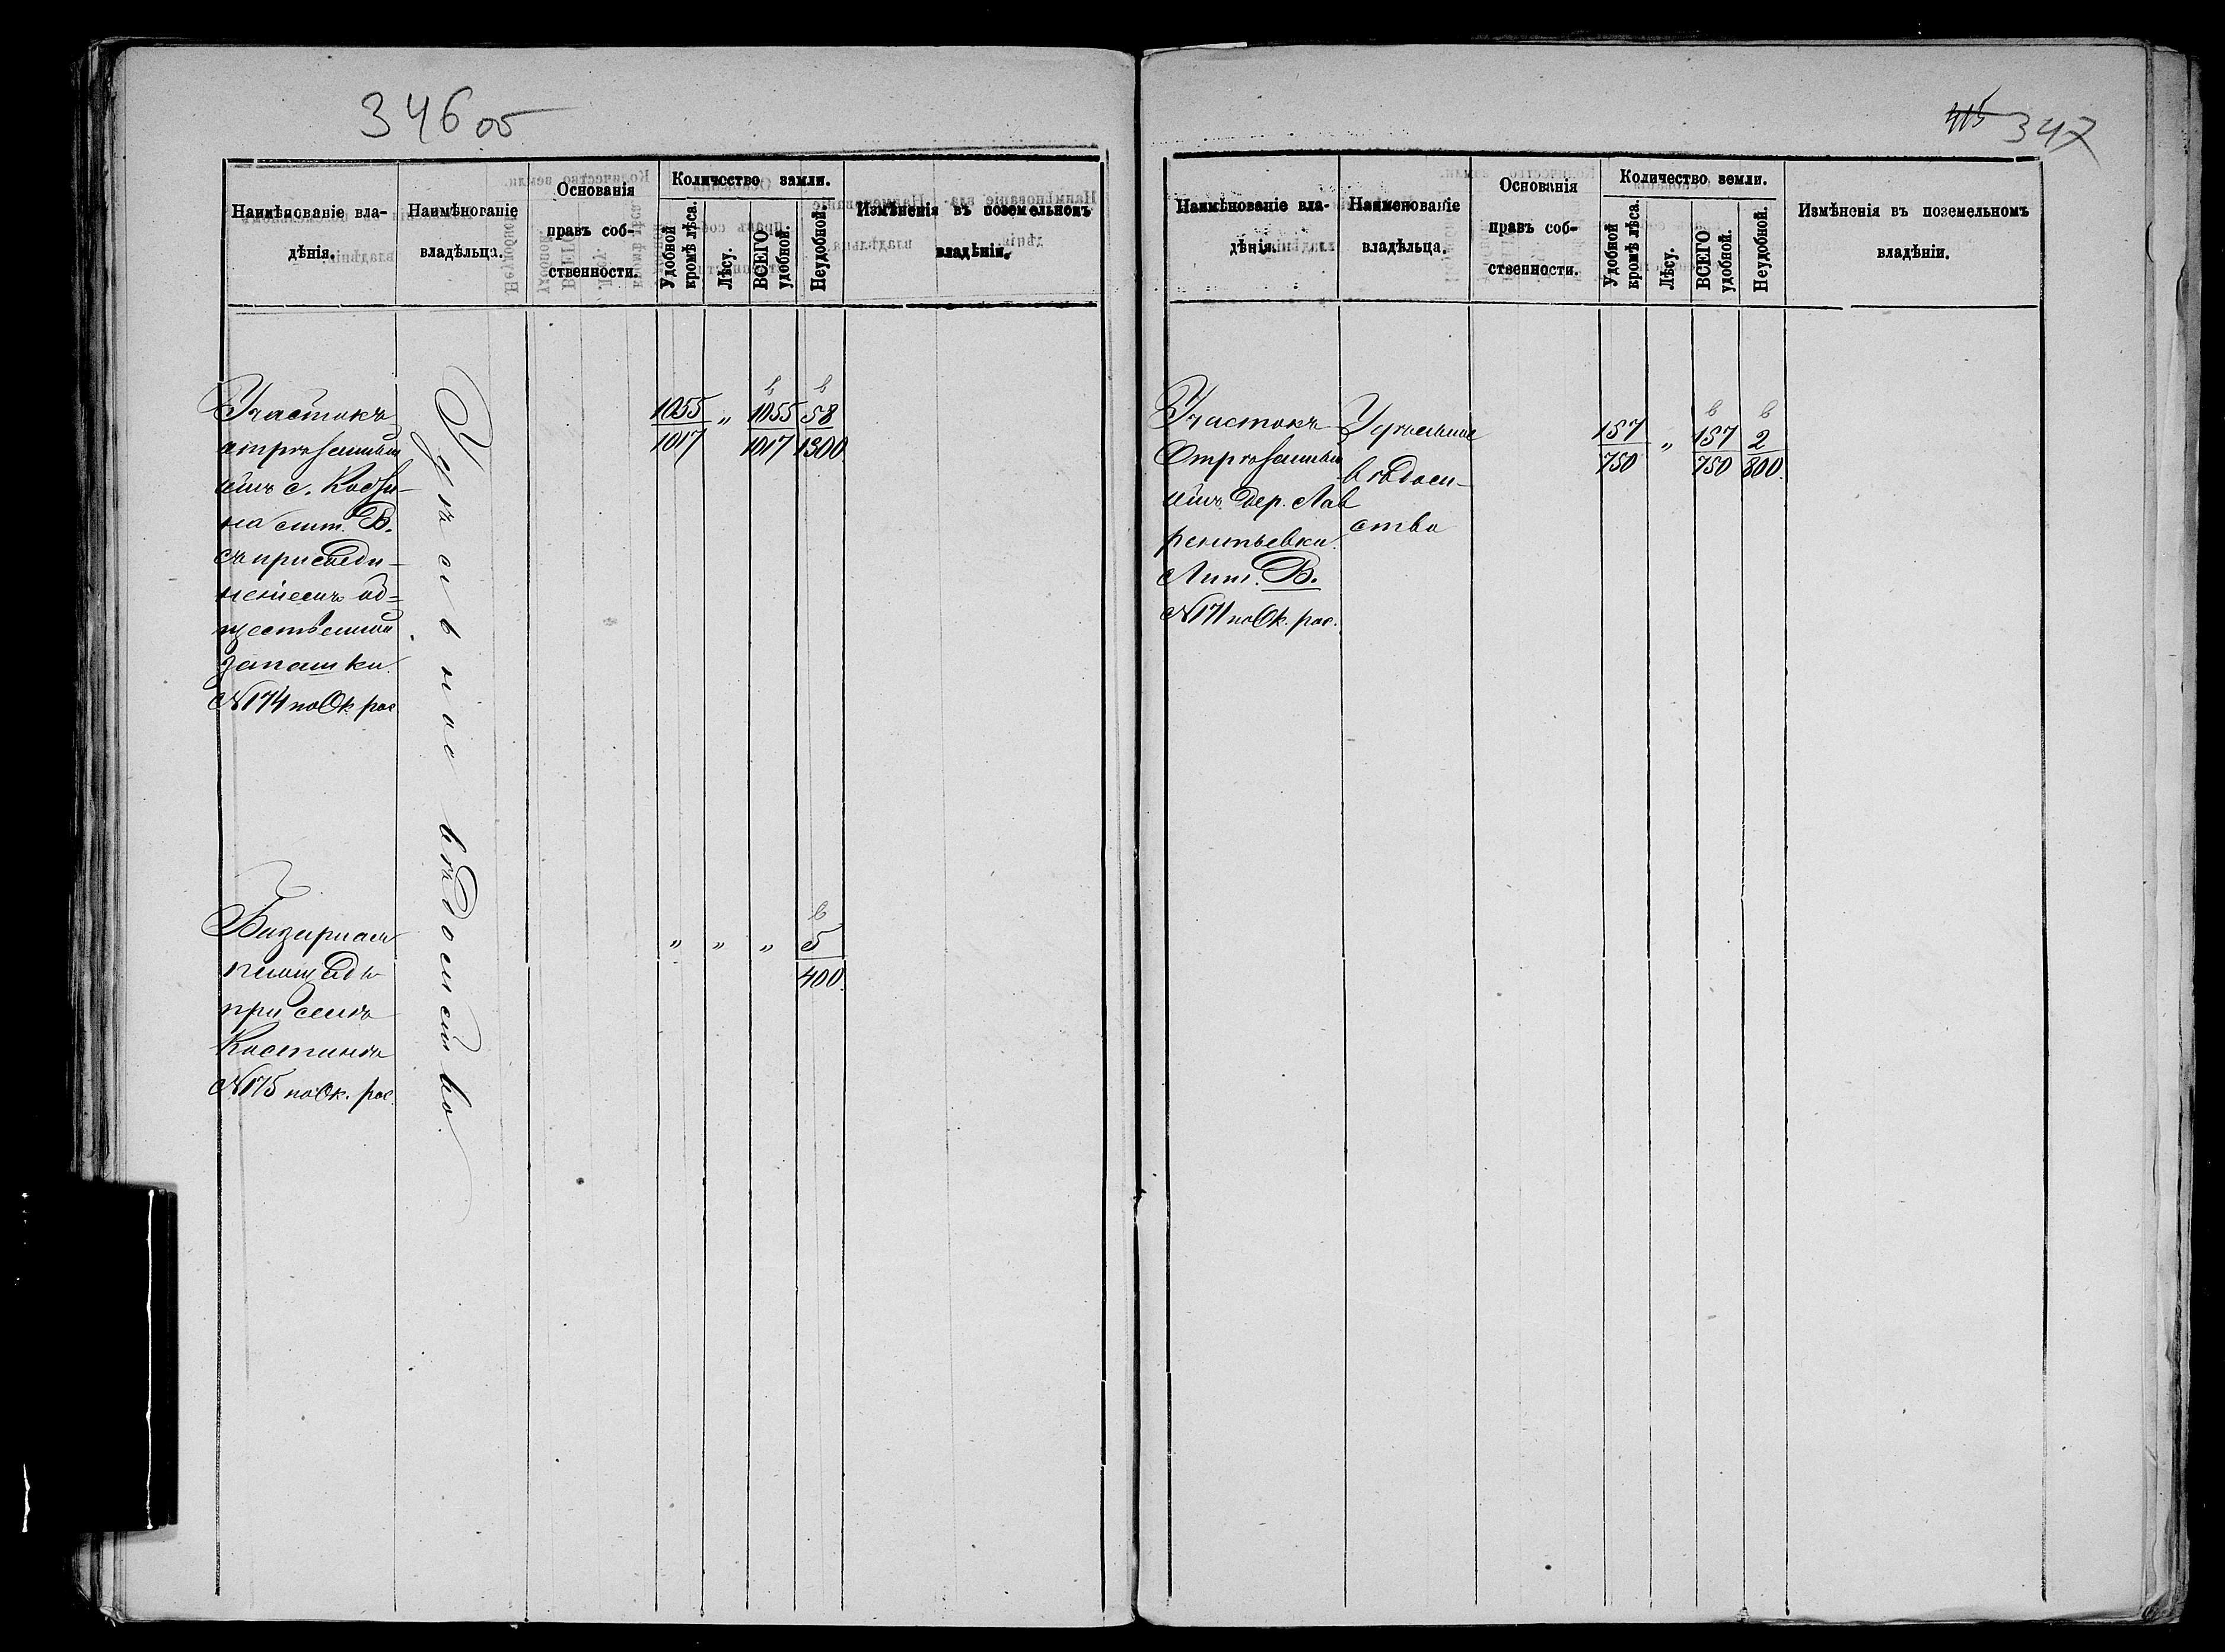 346 об
Наимѣнованіе вла-
дѣнія.
Наимѣнованіе
владѣльца.
Основанія
правъ соб-
ственности.
Количество земли.
Удобной
кромѣ лѣса.
Лѣсу.
ВСЕГО
удобной.
Неудобной.
Измѣненія въ поземельномъ
владѣніи.
Участокъ
отрѣзанный
отъ с. Кост-
на лит. В.
съ присоеди-
неніемъ об=
щественной
запашки.
№ 174 по Ок. рос.
Удѣльное вѣдомство.
1055 " 1055 58
1017 1017 1300.
Базарная
площадь
при селѣ
Костинѣ
№ 175 по Ок. рос.
" " " 5
400.
415 347
Наимѣнованіе вла-
дѣнія.
Наименованіе
владѣльца.
Основанія
правъ соб-
ственности.
Количество земли.
Удобной
кромѣ лѣса.
Лѣсу.
ВСЕГО
удобной.
Неудобной.
Измѣненія въ поземельномъ
владѣніи.
Участокъ
Отрѣзанный
отъ дер. Лав
рентьевки.
Лит. В.
№ 171 по Ок. рос.
Удѣльное
вѣдом-
ство
157 " 157 2
750 750 800.